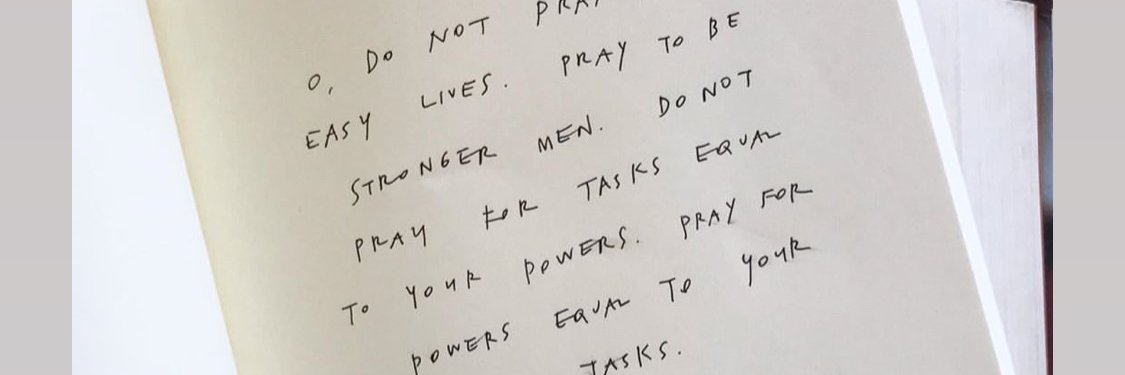 O, DO NOT PRAY
EASY LIVES. PRAY TO BE
STRONGER MEN. DO NOT
PRAY FOR TASKS EQUAL
TO YOUR POWERS. PRAY FOR
POWERS EQUAL TO YOUR
TASKS.